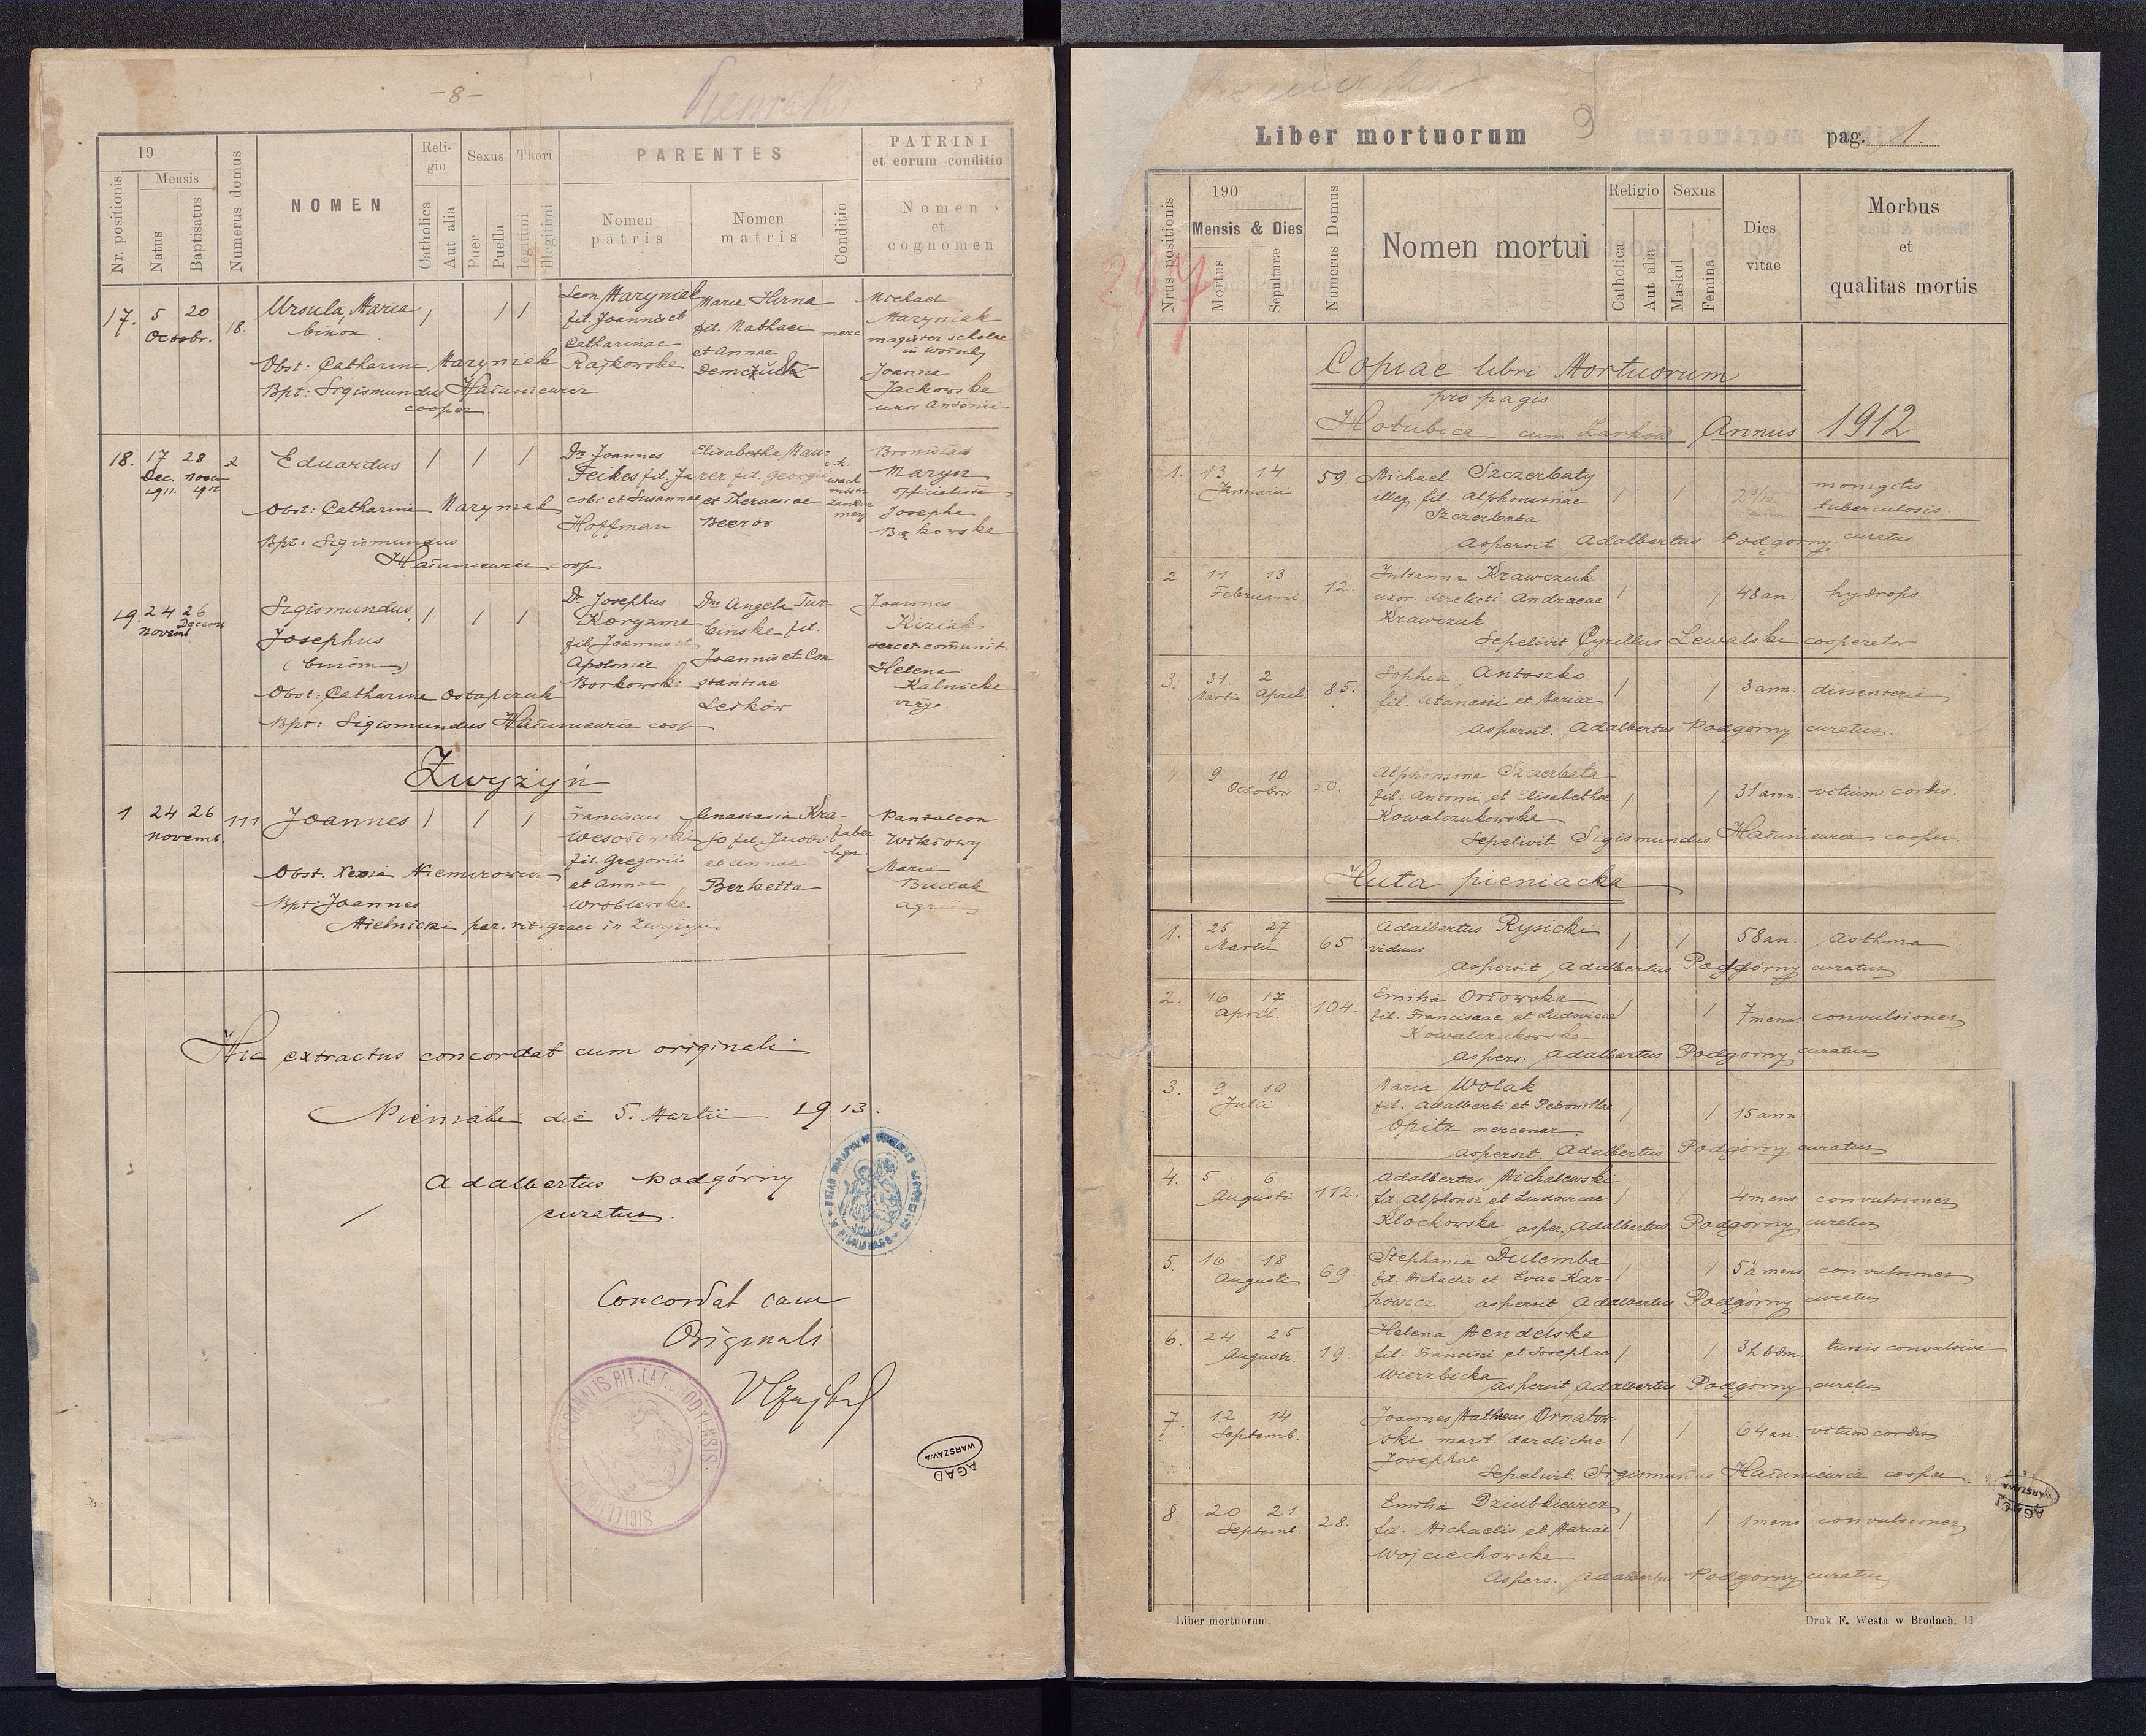 -8-
Pieniaki
19
Mensis
Nr. positionis
Natus
Baptisatus
Numerus domus
NOMEN
Reli-
gio
Catholica
Aut alia
Sexus
Puer
Puella
Thori
legitimi
illegitimi
PARENTES
Nomen
patris
Nomen
matris
Conditio
PATRINI
et eorum conditio
Nomen
et
cognomen
17. 5 20
Octobr.
18.
Ursula, Maria
binom
Obst: Catharina Maryniak
Bpt: Sigismundus Hałuniewicz
cooper.
Leon Maryniak
fil. Joannis et
Catharinae
Rajkowska
Maria Hirna
fil. Mathaei
et Annae
Demczuk
merc
Michael
Maryniak
magister scholae
in Worochy
Joanna
Jackowska
uxor Antonii
18. 17 28 2
Dec. Novem
1911. 1912
Eduardus
Obst: Catharina Maryniak
Bpt: Sigismundus
Hałuniewicz coop.
Dr. Joannes
Feikes fil. Ja
cobi et Susannae
Hoffman
Elisabetha Mau-
rer fil. Georgii
et Theresiae
Beeros
Bronisław
Marysz
officialista
Josepha
Bąkowska
19. 24 26
Novemb Decem
Sigismundus,
Josephus
(binom)
Obst: Catharina Ostapczuk
Bpt: Sigismundus Hałuniewicz coop
Dr. Josephus
Koryzma
fil. Joannis et
Apoloniae
Borkowski
Dna Angela Tur-
binska fil.
Joannis et Con
stantiae
Leskow
Joannes
Kiziak
secret. communit.
Helena
Kalnicka
virgo.
Zwyżyń
1 24 26 111
Novemb.
Joannes
Obst. Xenia Niemirowicz
Bpt: Joannes
Mielnicki par. rit. graec in Zwyżyń
Franciscus
Wesołowski
fil. Gregorii
et Annae
Wroblewska
Anastasia Kra-
so fil. Jacobi
et Annae
Berketta
faber
lign.
Pantaleon
Wiktowy
Maria
Budak
agric
Hic extractus concordat cum originali
Pieniaki die 5. Martii 1913.
Adalbertus Podgórny
curatus.
Concordat cum
Originali
AGAD
WARSZAWA
Liber mortuorum
9
pag. 1.
297
Nrus positionis
190
Mensis & Dies
Mortus
Sepulturæ
Numerus Domus
Nomen mortui
Religio
Catholica
Aut alia
Sexus
Maskul
Femina
Dies
vitae
Morbus
et
qualitas mortis
Copiae libri Mortuorum
pro pagis
Hołubica cum Zarków Annus 1912
1. 13 14 59.
Januarii
Michael Szczerbaty
illeg. fil. Alphonsinae
Szczerbata
monigitis
tuberculosis.
aspersit Adalbertus Podgórny curatus
2 11 13 12.
Februarii
Julianna Krawczuk
uxor. derelicti Andraeae
Krawczuk
48 an. hydrops
Sepelivit Cyrillus Lewalski cooperator
3. 31. 2 85.
Martii April.
Sophia Antoszko
fil. Atanasii et Mariae
3 ann. dissenteria
aspersit. Adalbertus Podgórny curatus.
4. 9 10 50.
Octobris
Alphonsina Szczerbata
fil. Antonii et Elisabethae
Kowalczukowska
31 ann. vitium cordis.
Sepelivit Sigismundus Hałuniewicz cooper.
Huta pieniacka
1. 25 27 65.
Martii
Adalbertus Rysicki
viduus
58 an. Asthma
aspersit Adalbertus Podgórny curatus.
2. 16 17 104.
April.
Emilia Orłowska
fil. Franciscae et Ludovicae
Kowalczukowska
7 mens. convulsiones
aspers. Adalbertus Podgórny curatus
3. 9 10
Julii
Maria Wolak
fil. Adalberti et Petronillae
Opitz mercenar
15 ann
aspersit. Adalbertus Podgórny curatus
4. 5 6 112.
Augusti
Adalbertus Michalewski
fil. Alphonsi et Ludovicae
Kłockowska asper. Adalbertus Podgórny curatus
4 mens convulsiones
5. 16 18 69.
Augusti
Stephania Dulemba
fil. Michaelis et Evae Kar-
powicz aspersit Adalbertus Podgórny curatus
5½ mens. convulsiones
6. 24 25 19.
Augusti.
Helena Mendelska
fil. Francisci et Josephae
Wierzbicka
tussis convulsiva
aspersit Adalbertus Podgórny curatus
7. 12 14
Septemb.
Joannes Matheus Ornatow-
ski marit. derelictae
Josephae
64 an. vitium cordis
Sepelivit. Sigismundus Hałuniewicz cooper.
8. 20 21 28.
Septemb.
Emilia Dziubkiewicz
fil. Michaelis et Mariae
Wojciechowska
1 mens convulsiones
Aspers. Adalbertus Podgórny curatus
Liber mortuorum.
Druk F. Westa w Brodach. 11
AGAD
WARSZAWA